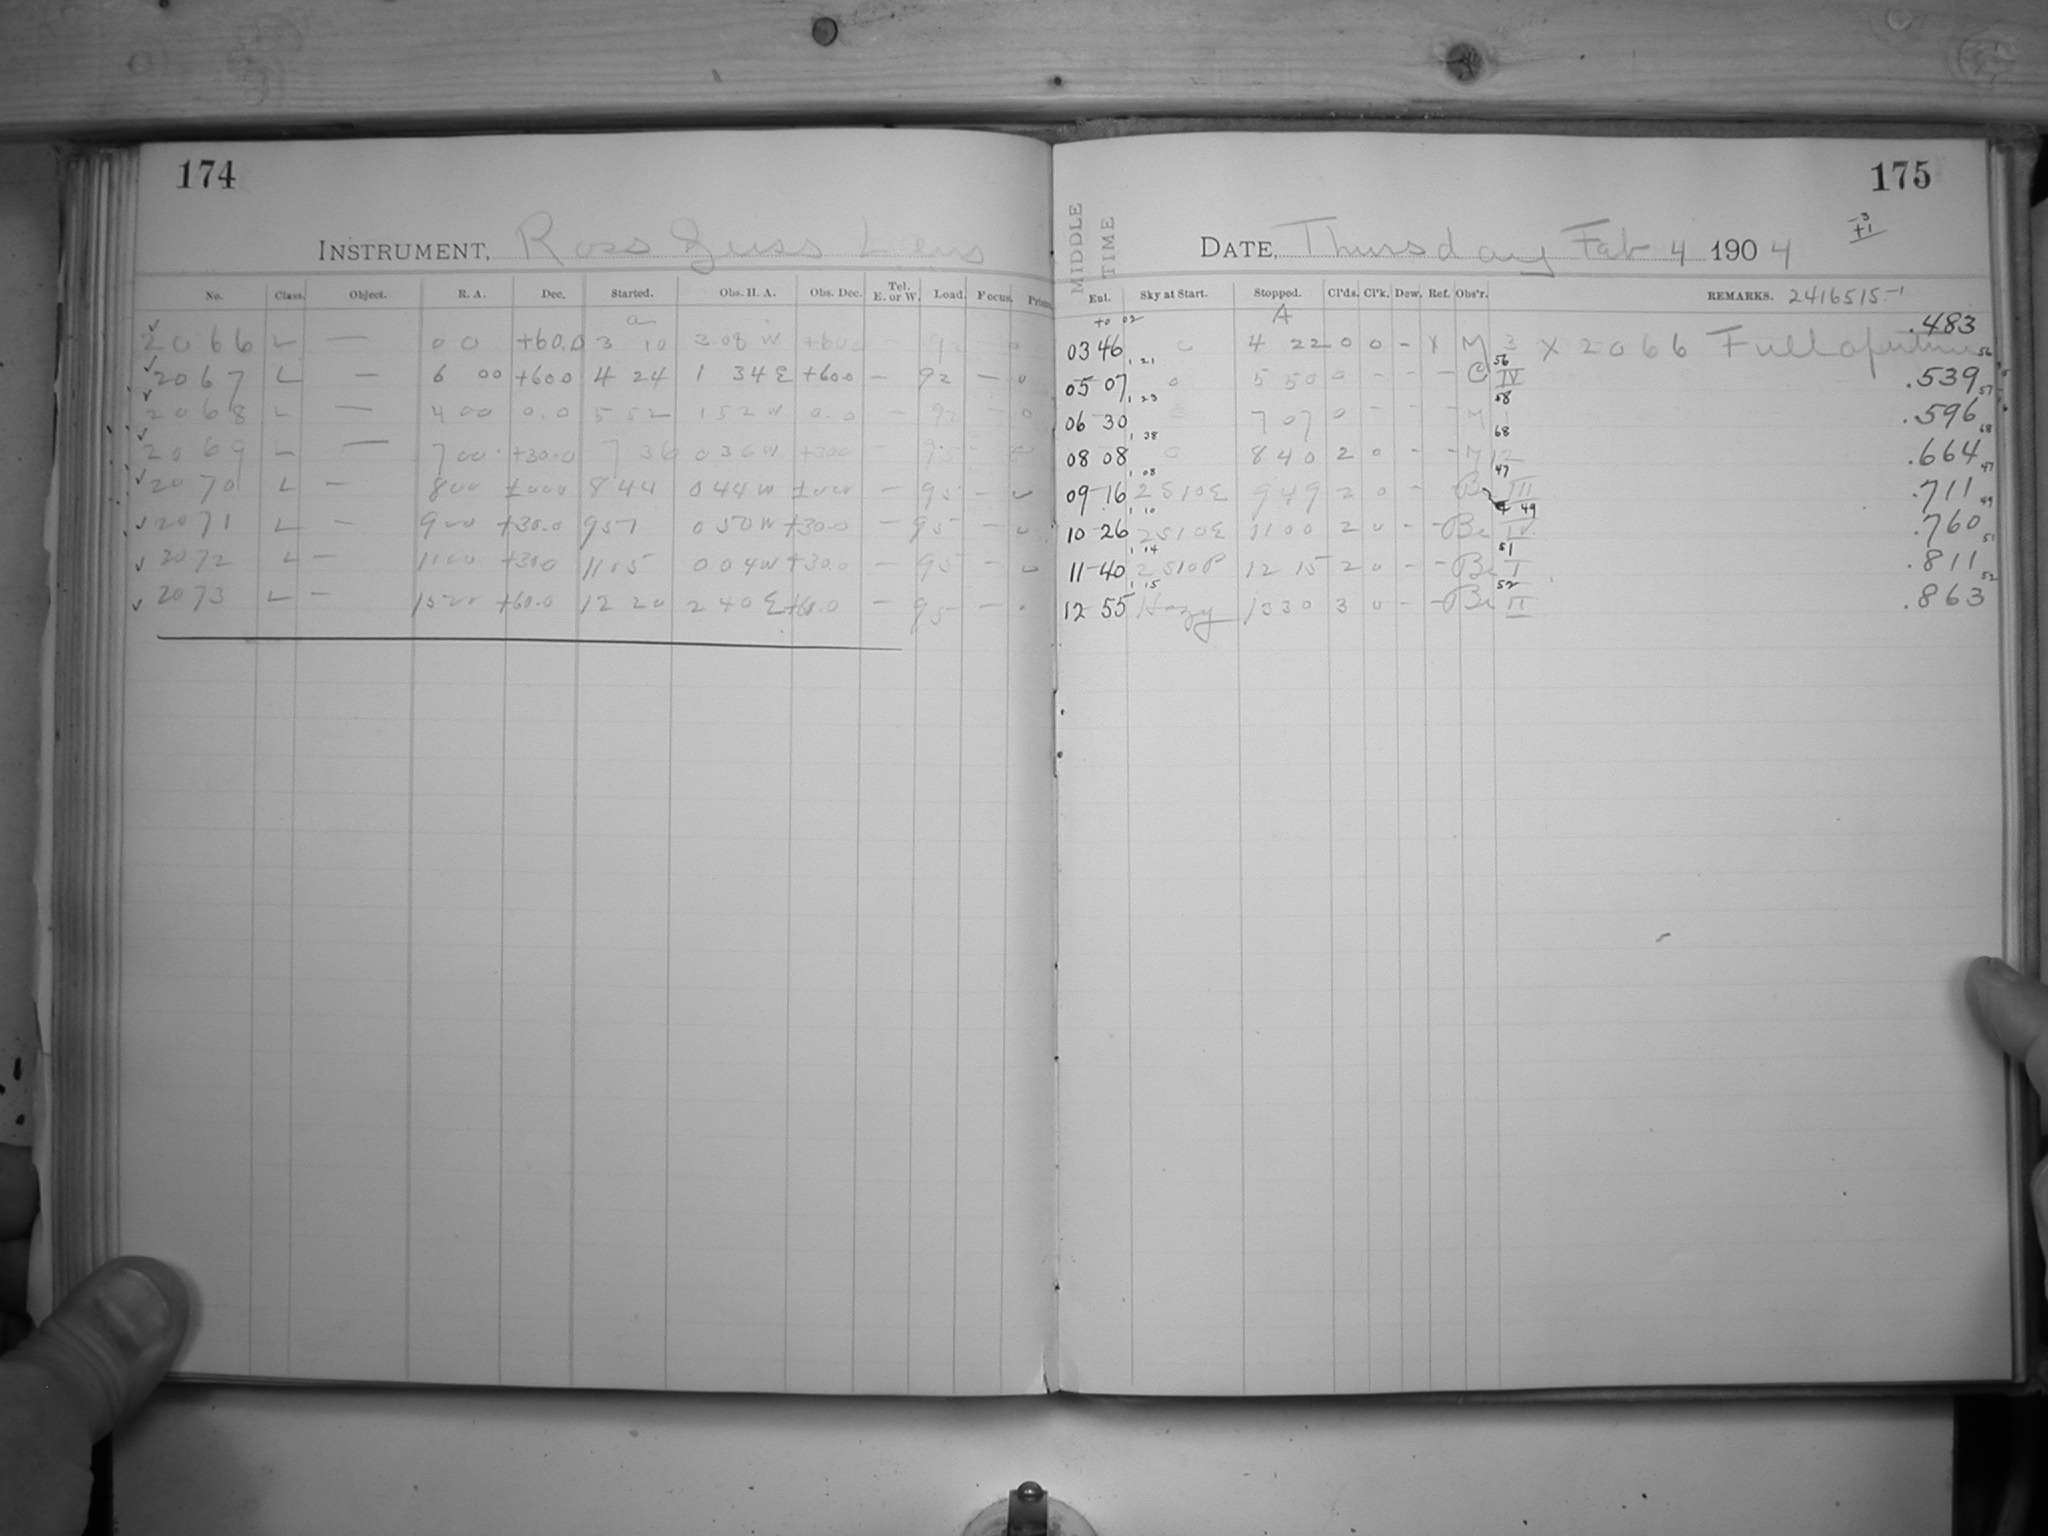 174
INSTRUMENT, Ross Zeiss Lens
No. Class. Object. R. A. Dec. Started. Obs. H. A. Obs. Dec. Tel. E. or W. Load. Focus.
a
2066 L — 0 0 +60.0 3 10 3 08 W +60.0 — 92 — 0
2067 L — 6 00 +60.0 4 24 1 34 E +60.0 — 92 — 0
2068 L — 4 00 0.0 5 52 1 52 W 0.0 — 92 — 0
2069 L — 7 00 +30.0 7 36 0 36 W +30.0 — 95 —
2070 L — 8 00 8 44 0 44 W — 95 —
2071 L — 9 00 +30.0 9 51 0 50 W +30.0 — 95 — 0
2072 L — 11 00 +30.0 11 05 0 04 W +30.0 — 95 —
2073 L — 15 +60.0 12 20 2 40 E +60.0 — 95 —
175
MIDDLE TIME
DATE, Thursday Feb 4 1904
-3
+1
Enl. Sky at Start. Stopped. Cl'ds. Cl'k. Dew. Ref. Obs'r. REMARKS. 2416515.-1
+0 02 A
03 46 0 4 22 0 0 - X M 3 X 2066 Full aperture .483
1 21 56 56
05 07 0 5 50 0 - - - C IV .539
1 23 58 57
06 30 7 07 0 - - - M .596
1 38 68 68
08 08 0 8 40 2 0 - - M 2 .664
1 08 47 47
09 16 2 S10E 9 49 2 0 - Be III .711
1 10 49 49
10 26 2 S10E 11 00 2 0 - - Be IV .760
1 14 51 51
11 40 2 S10P 12 15 2 0 - - Be I .811
1 15 52 52
12 55 Hazy 13 30 3 0 - - Be II .863